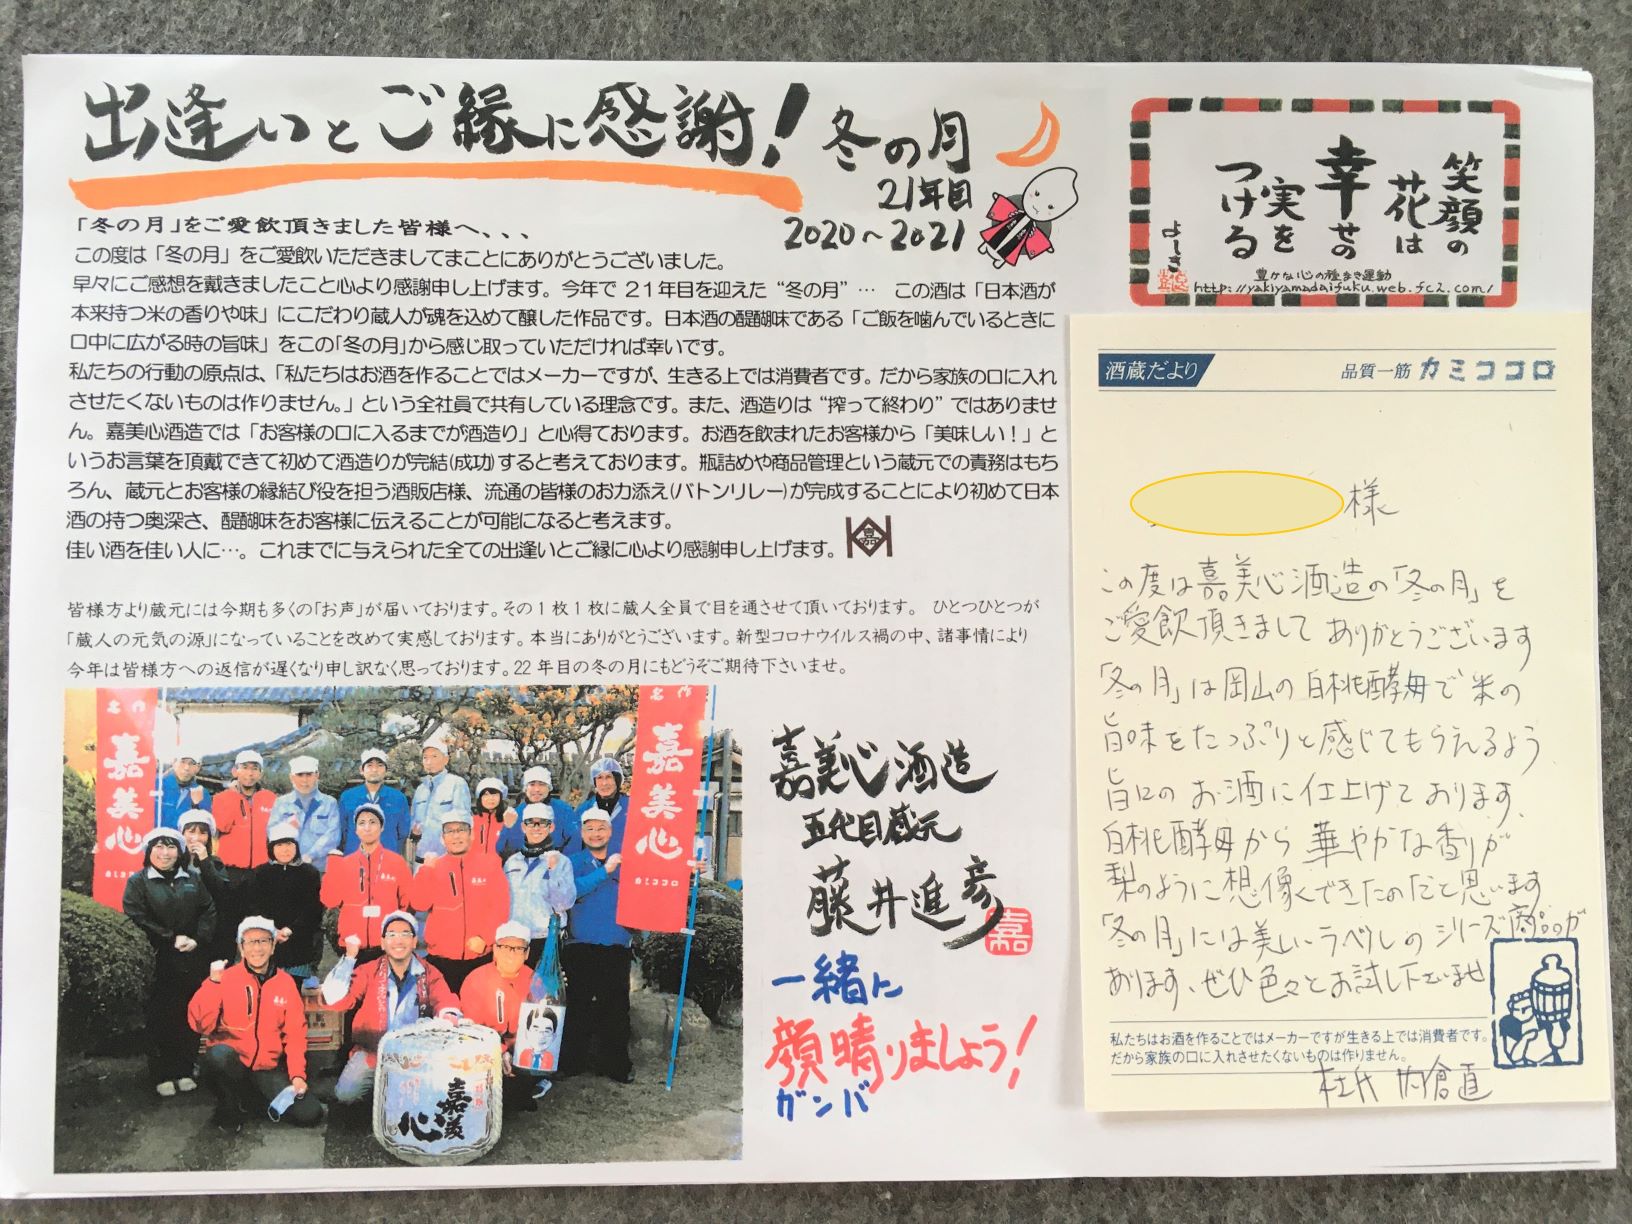 出逢いとご縁に感謝!
冬の月
21年目
2020~2021
「冬の月」をご愛飲頂きました皆様へ、、、
この度は「冬の月」をご愛飲いただきましてまことにありがとうございました。
早々にご感想を戴きましたこと心より感謝申し上げます。今年で21年目を迎えた“冬の月”… この酒は「日本酒が
本来持つ米の香りや味」にこだわり蔵人が魂を込めて醸した作品です。日本酒の醍醐味である「ご飯を噛んでいるときに
口中に広がる時の旨味」をこの「冬の月」から感じ取っていただければ幸いです。
私たちの行動の原点は、「私たちはお酒を作ることではメーカーですが、生きる上では消費者です。だから家族の口に入れ
させたくないものは作りません。」という全社員で共有している理念です。また、酒造りは“搾って終わり”ではありませ
ん。嘉美心酒造では「お客様の口に入るまでが酒造り」と心得ております。お酒を飲まれたお客様から「美味しい!」と
いうお言葉を頂戴できて初めて酒造りが完結(成功)すると考えております。瓶詰めや商品管理という蔵元での責務はもち
ろん、蔵元とお客様の縁結び役を担う酒販店様、流通の皆様のお力添え(バトンリレー)が完成することにより初めて日本
酒の持つ奥深さ、醍醐味をお客様に伝えることが可能になると考えます。
佳い酒を佳い人に…。これまでに与えられた全ての出逢いとご縁に心より感謝申し上げます。
嘉
皆様方より蔵元には今期も多くの「お声」が届いております。その1枚1枚に蔵人全員で目を通させて頂いております。 ひとつひとつが
「蔵人の元気の源」になっていることを改めて実感しております。本当にありがとうございます。新型コロナウイルス禍の中、諸事情により
今年は皆様方への返信が遅くなり申し訳なく思っております。22年目の冬の月にもどうぞご期待下さいませ。
名作
嘉美心
カミココロ
名作
嘉美心
カミココロ
嘉美心
嘉美心酒造
五代目蔵元
藤井進彦
嘉
一緒に
顔晴りましょう!
ガンバ
笑顔の
花は
幸せの
実を
つける
よしき
豊かな心の種まき運動
http://yakiyamadaifuku.web.fc2.com/
酒蔵だより
品質一筋 カミココロ
様
この度は嘉美心酒造の「冬の月」を
ご愛飲頂きまして ありがとうございます
「冬の月」は岡山の白桃酵母で米の
旨味をたっぷりと感じてもらえるよう
旨口のお酒に仕上げております、
白桃酵母から華やかな香りが
梨のように想像できたのだと思います
「冬の月」には美しいラベルのシリーズ商品が
あります、ぜひ色々とお試し下さいませ
私たちはお酒を作ることではメーカーですが生きる上では消費者です。
だから家族の口に入れさせたくないものは作りません。
杜氏 内倉直